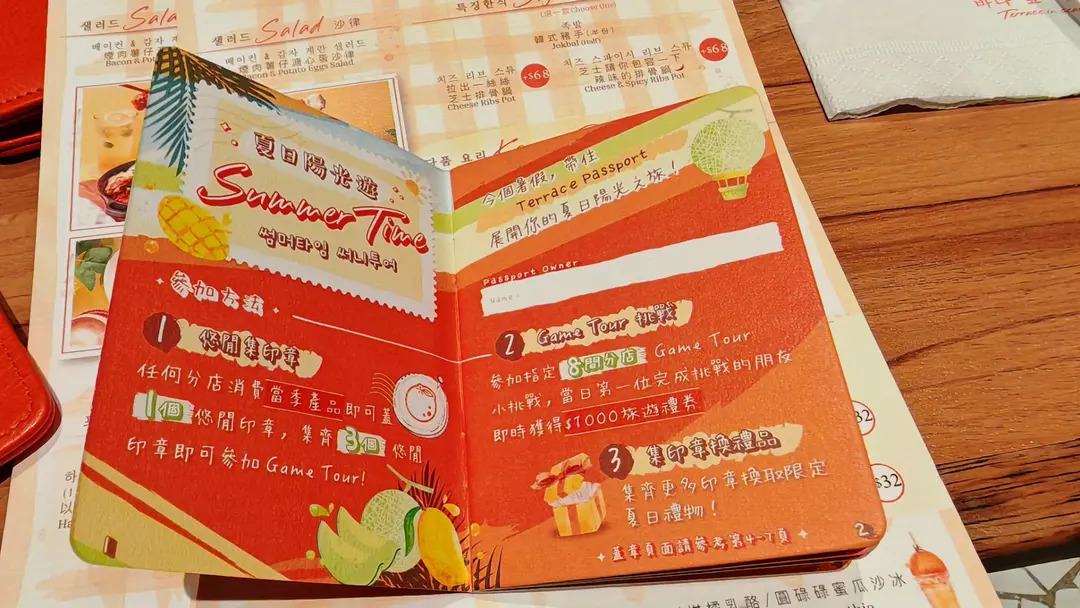 샐러드 Salad
베이컨 & 감자 계란 샐러드
샐러드 Salad 沙律
베이컨 & 감자 계란 샐러드
煙肉薯仔溏心蛋沙律
Bacon & Potato Eggs Salad
특징한식
(選一款 Choose One)
족발
韓式豬手(半份)
Jokbal (Half)
치즈 리브 스튜
拉出一絲絲
芝士排骨鍋
Cheese Ribs Pot
+$68
치즈 스파이시 리브 스튜
芝士請你包容一下
辣味的排骨鍋
Cheese & Spicy Ribs Pot
+$68
夏日陽光遊
Summer Time
썸머타임 써니투어
參加方法
1 悠閒集印章
任何分店消費當季產品即可蓋
1個 悠閒印章，集齊 3個 悠閒
印章即可參加 Game Tour!
今個暑假，帶住
Terrace Passport
展開你的夏日陽光之旅！
Passport Owner
Name:
2 Game Tour 挑戰
參加指定 8間分店 Game Tour
小挑戰，當日第一位完成挑戰的朋友
即時獲得$1000旅遊禮券
3 集印章換禮品
集齊更多印章換取限定
夏日禮物！
蓋章頁面請參考第4-7頁
2
$32
乳酪/圓碌碌蜜瓜沙冰